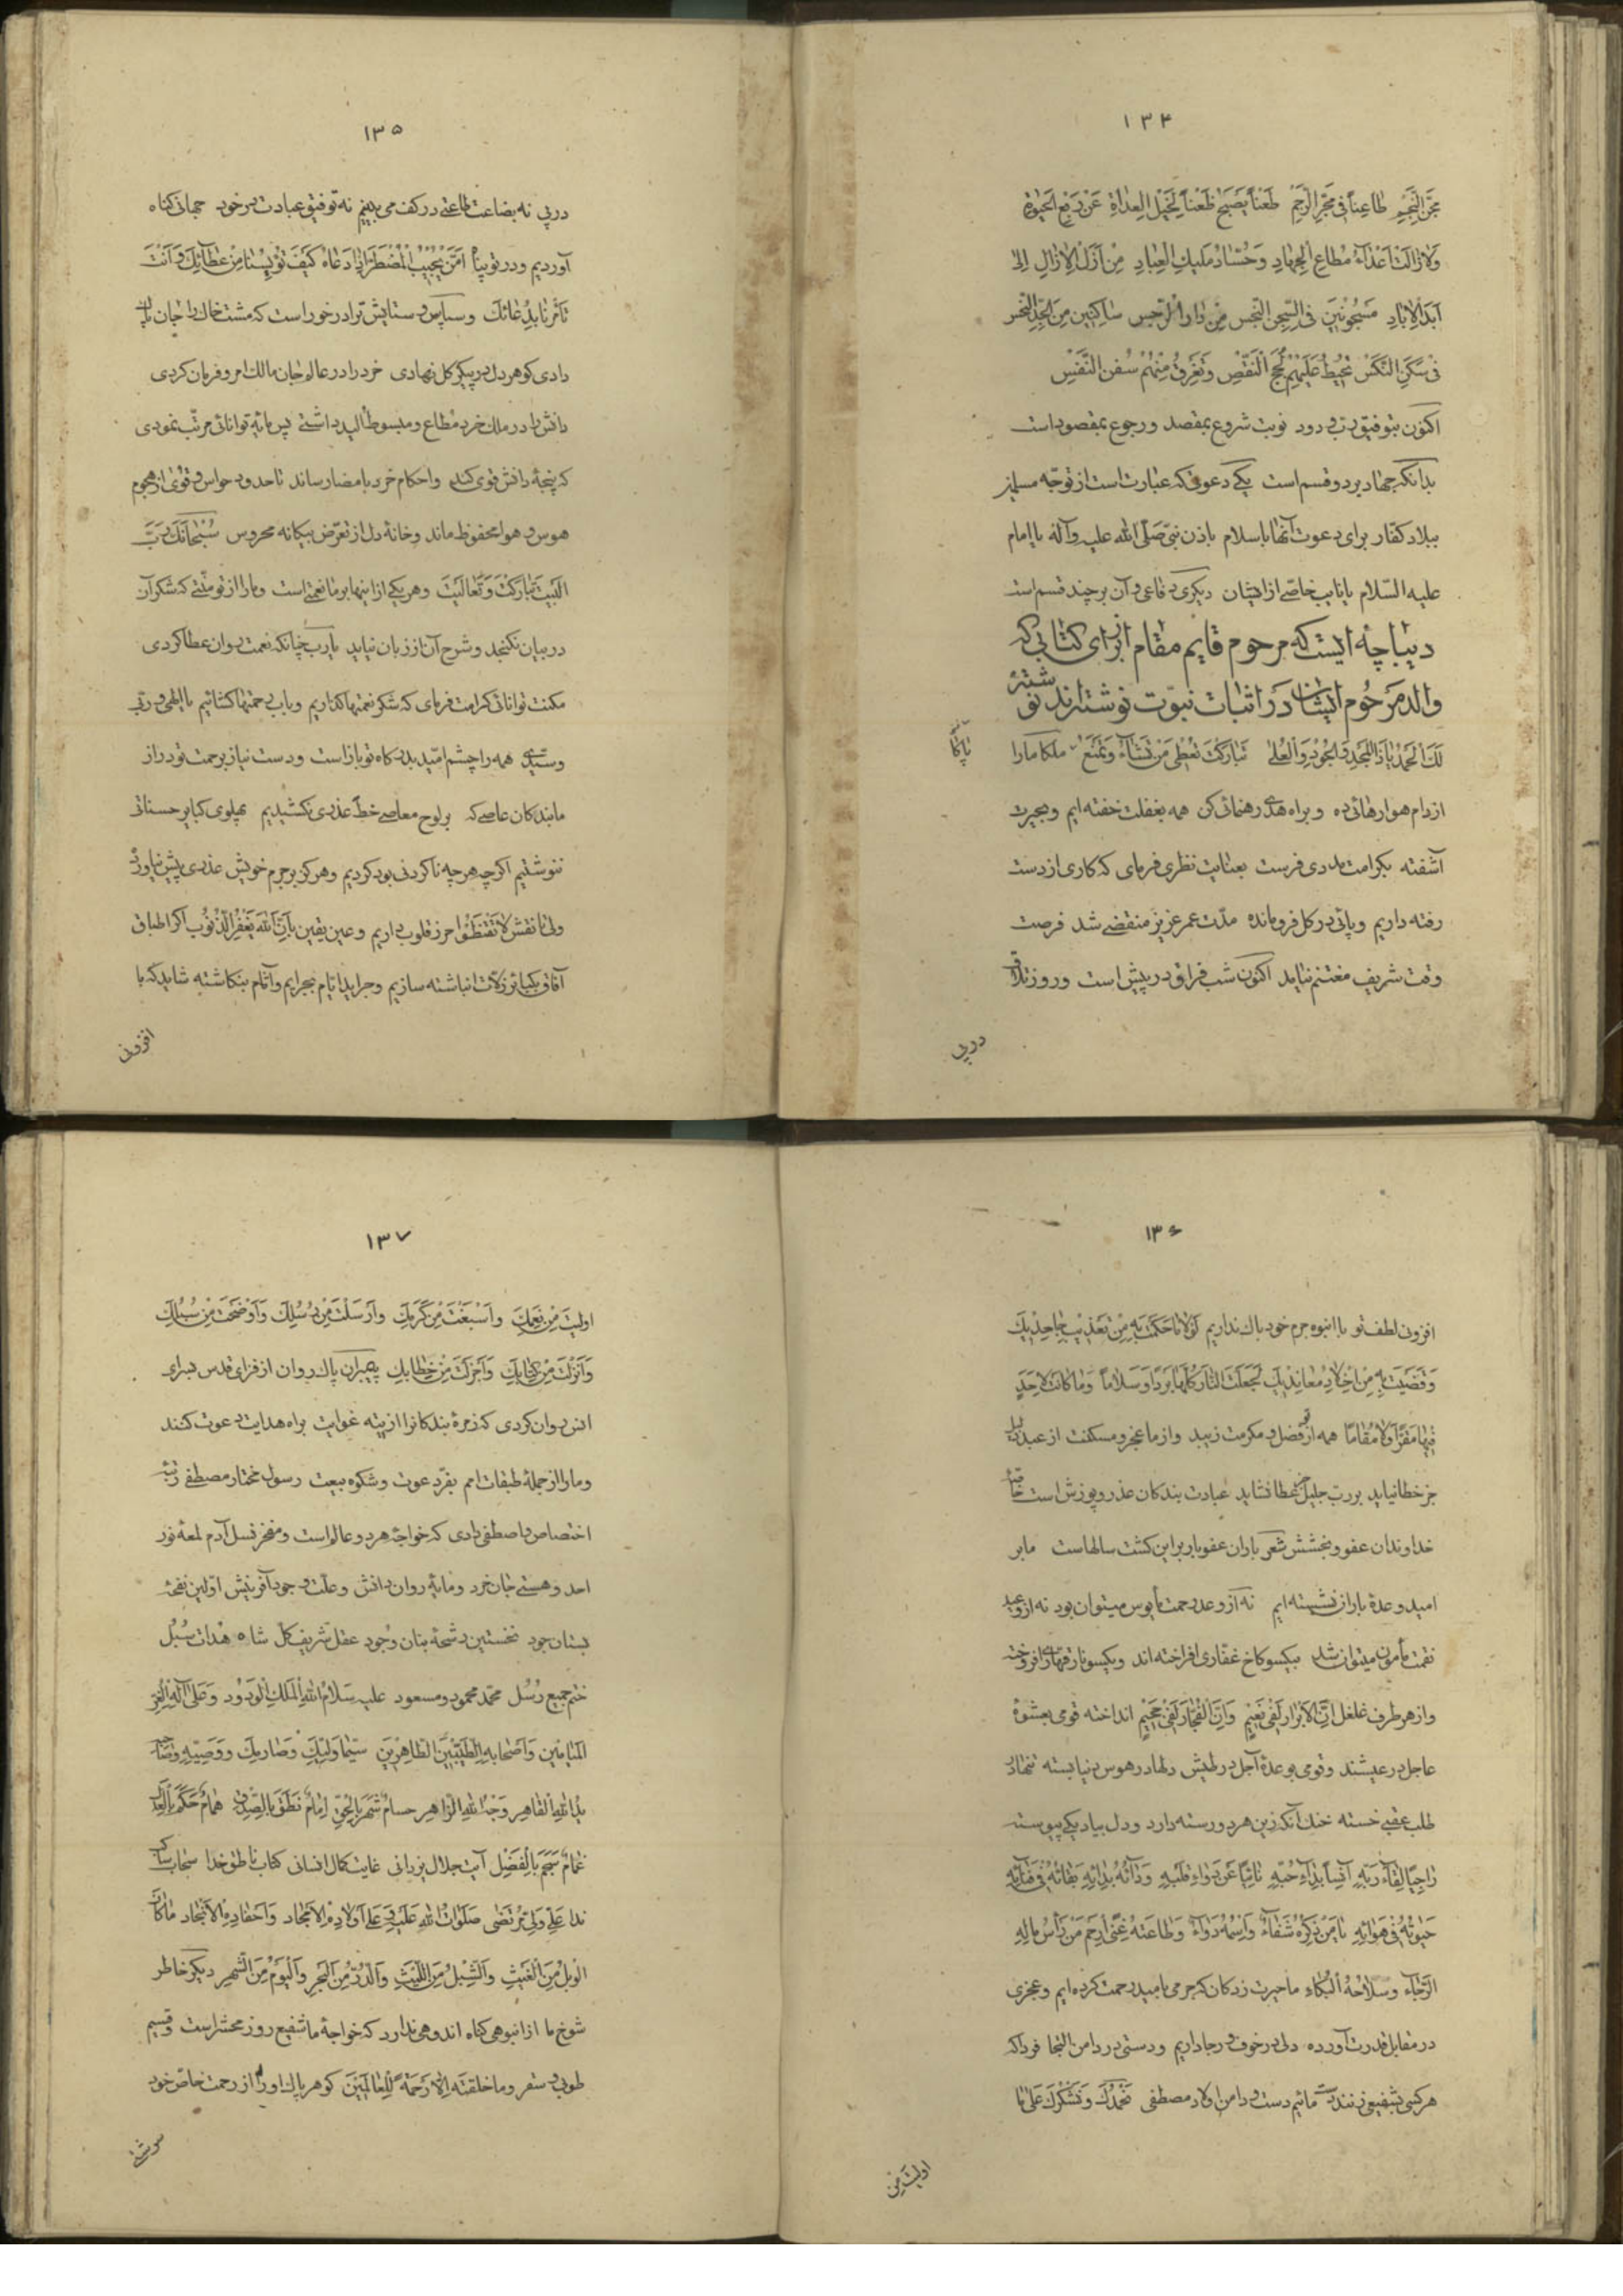 ۱۳۴
مجن النجم طاعنا فی مجر الرجم طعنا یصبح ظعنا لخیل العداة عن ربع الحیوة
ولا زالت اعداء مطاع الجهاد وحساد ملیک العباد من ازل الازال الی
ابد الاباد مسجونین فی السجن النجس من دار الرجس ساکنین من الجد النحس
فی سکن النکس تحیط علیهم لجج النقص وتغرق منهم سفن النفس
اکنون بتوفیق رب ودود نوبت شروع بمقصد ورجوع بمقصود است
بدانکه جهاد بر دو قسم است یکی دعوتی که عبارت است از توجه مسلمین
ببلاد کفار برای دعوت آنها باسلام باذن نبی صلی الله علیه وآله یا امام
علیه السلام یا نایب خاصی از ایشان دیگری دفاعی وآن بر چند قسم است
دیباچه ایست که مرحوم قایم مقام از برای کتابی که
والد مرحوم ایشان در اثبات نبوت نوشته اند نوشته
لک الحمد یا ذا المجد والجود والعلی تبارکت تعطی من تشاء وتمنع ملکا ما را
پاکا
از دام هوا رهائی ده و براه هدی رهنمائی کن همه بغفلت خفته ایم و بحیرت
آشفته بکرامت مددی فرست بعنایت نظری فرمای که کاری از دست
رفته داریم و پائی در کل فرومانده مدت عمر عزیز منقضی شد فرصت
وقت شریف مغتنم نیاید اکنون شب فراق در پیش است و روز تلاق
در پی
۱۳۵
در پی نه بضاعت طاعتی در کف می بینیم نه توفیق عبادت در خود جهانی کناه
آوردیم و در تو پناه امن یجیب المضطر اذا دعاه کیف تویسنا من عطائک وانت
تأمرنا بدعائک وسپاس و ستایش ترا در خور است که مشت خاک را جان پاک
دادی کوهر دل در پیکر کل نهادی خرد را در عالم جان مالک امر و فرمان کردی
دانش را در ملک خرد مطاع و مبسوط الید داشتی پس مایه توانائی مرتب نمودی
که پنجه دانش قوی کند و احکام خرد بامضا رساند تا حدود حواس و قوی از هجوم
هوس و هوا محفوظ ماند وخانه دل از تعرض بیکانه محروس سبحانک رب
البیت تبارکت وتعالیت وهر یکی از اینها بر ما نعمتی است و ما را از تو منتی که شکر آن
در بیان نکنجد و شرح آن از زبان نیاید یا رب چنانکه نعمت روان عطا کردی
مکنت توانائی کرامت فرمای که شکر نعمتها کذاریم و باب رحمتها کشائیم یا الهی وربی
وسیدی همه را چشم امید بدرکاه تو باز است و دست نیاز برحمت تو دراز
ما بندکان عاصی که بر لوح معاصی خط عذری نکشیدیم پهلوی کبایر حسناتی
ننوشتیم اکر چه هر چه ناکردنی بود کردیم و هرکز بر جرم خویش عذری پیش نیاورد
ولی تا نقش لا تقنطوا حرز قلوب داریم و عین یقین بان الله یغفر الذنوب اکر اطباق
آفاق بکبائر زلات انباشته سازیم و جراید ایام بجرایم و آثام بنکاشته شاید که با
افزونی
۱۳۶
افزونی لطف تو با انبوه جرم خود باک نداریم لولا ما حکمت به من تعذیب جاحدیک
وقضیت به من اخلاد معاندیک لجعلت النار کلها بردا وسلاما وما کانت لاحد
فیها مقرا ولا مقاما همه از تو فضل و مکرمت زیبد و از ما عجز و مسکنت از عبد ذلیل
جز خطا نیاید بر رب جلیل جز عطا نشاید عبادت بندکان عذر و پوزش است خاصه
خداوندان عفو و بخشش شعر باران عفو بار بر این کشت سالهاست ما بر
امید وعده باران نشسته ایم نه از وعد رحمت مایوس میتوان بود نه از وعید
نقمت مأمون میتوان شد بیکسو کاخ غفاری افراخته اند و بیکسو نار قهاری افروخته
و از هر طرف غلغل ان الابرار لفی نعیم وان الفجار لفی جحیم انداخته قومی بعشوه
عاجل در عیشند و قومی بوعده آجل در طیش دلها در هوس دنیا بسته تنها در
طلب عقبی خسته خنک آنکه زین هر دو رسته دارد و دل بیاد یکی پیوسته
راجیا لقاء ربه آنسا بداء حبه نائیا عن دواء طلبه ودائه بدائه بقائه فی فنائه
حیوته فی هوائه یا من ذکره شفاء واسمه دواء وطاعته غنی ارحم من رأس ماله
الرجاء وسلاحه البکاء ما حیرت زدکان که جرمی بامید رحمت کرده ایم و عجزی
در مقابل قدرت آورده دلی در خوف و رجا داریم و دستی در دامن التجا فردا که
هر کسی بشفیعی زنند دست مائیم دست و دامن اولاد مصطفی نحمدک ونشکرک علی ما
اولیت من
۱۳۷
اولیت من نعمک واسبغت من کرمک وارسلت من رسلک واوضحت من سبلک
وانزلت من کتابک واجزلت من خطابک پیمبران پاک روان از فزای قدس بسرای
انس روان کردی که زمره بندکانرا از تیه غوایت براه هدایت دعوت کنند
و ما را از جمله طبقات امم بفر دعوت و شکوه بیعت رسول مختار مصطفی رتبه
اختصاص و اصطفی دادی که خواجه هر دو عالم است و مفخر نسل آدم لمعه نور
احد و هستی جان خرد و مایه روان دانش و علت وجود آفرینش اولین نفحه
بستان جود نخستین رشحه بنان وجود عقل شریف کل شاه هدات سبل
ختم جمیع رسل محمد محمود و مسعود علیه سلام الله الملک الودود وعلی آله الغر
المیامین واصحابه الطیبین الطاهرین سیما ولیک وصارمک ووصیه وصاحبه
ید الله القاهر وجه الله الزاهر حسام شهر بالحق امام نطق بالصدق همام حکم بالعدل
غمام سجم بالفضل آیت جلال یزدانی غایت کمال انسانی کتاب ناطق خدا سحاب ساکب
ندا علی ولی مرتضی صلوات الله علیه وعلی اولاده الامجاد واحفاده الانجاد ما کان
الوبل من الغیث والشبل من اللیث والدر من البحر والیوم من الشهر دیکر خاطر
شوخ ما از انبوهی کناه اندوهی ندارد که خواجه ما شفیع روز محشر است و قسیم
طوبی و سقر وما خلقته الا رحمة للعالمین کوهر پاک او را از رحمت خاص خود
سرشتی